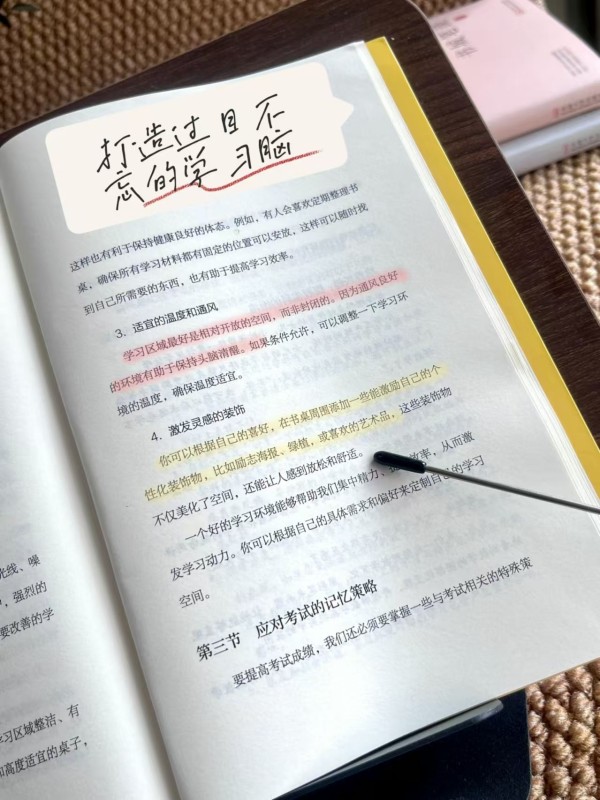 打造过目不
忘的学习脑
这样也有利于保持健康良好的体态。例如，有人会喜欢定期整理书
桌，确保所有学习材料都有固定的位置可以安放，这样可以随时找
到自己所需要的东西，也有助于提高学习效率。
3．适宜的温度和通风
学习区域最好是相对开放的空间，而非封闭的。因为通风良好
的环境有助于保持头脑清醒。如果条件允许，可以调整一下学习环
境的温度，确保温度适宜。
4．激发灵感的装饰
你可以根据自己的喜好，在书桌周围添加一些能激励自己的个
性化装饰物，比如励志海报、绿植，或喜欢的艺术品，这些装饰物
不仅美化了空间，还能让人感到放松和舒适。
一个好的学习环境能够帮助我们集中精力、效率，从而激
发学习动力。你可以根据自己的具体需求和偏好来定制自己的学习
空间。
第三节 应对考试的记忆策略
要提高考试成绩，我们还必须要掌握一些与考试相关的特殊策
光线、噪
，强烈的
要改善的学
学习区域整洁、有
和高度适宜的桌子，